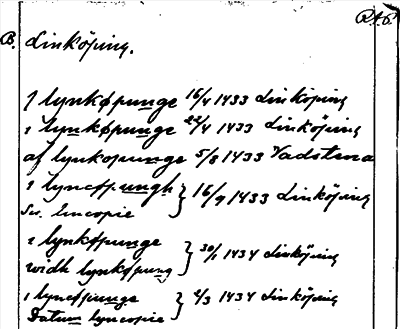 R.A.P.
B. Linköping.
i lynkøpunge 16/4 1433 Linköping
i lynkøpunge 22/4 1433 Linköping
af lynkopunge 5/8 1433 Vadstena
i lyncøpungh } 16/9 1433 Linköping
Sv. Encopie
i lynkøpunge } 30/1 1434 Linköping
widh lynkøpung
i lyncøpunge } 2/3 1434 Linköping
Datum lyncopie